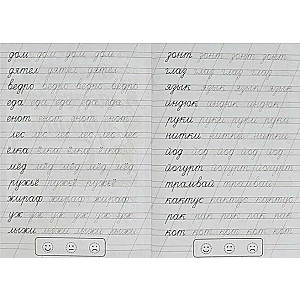 дом дом дом дом дом
дятел дятел дятел
ведро ведро ведро ведро
еда еда еда еда еда
енот енот енот енот
лес лес лес лес лес
ёлка ёлка ёлка ёлка
мёд мёд мёд мёд мёд
ружьё ружьё ружьё
жираф жираф жираф
уж уж уж уж уж уж
лыжи лыжи лыжи лыжи
зонт зонт зонт зонт
глаз глаз глаз глаз
язык язык язык язык
индюк индюк индюк
руки руки руки руки
нитки нитки нитки
йод йод йод йод йод
йогурт йогурт йогурт
трамвай трамвай
кактус кактус кактус
рак рак рак рак рак
кот кот кот кот кот